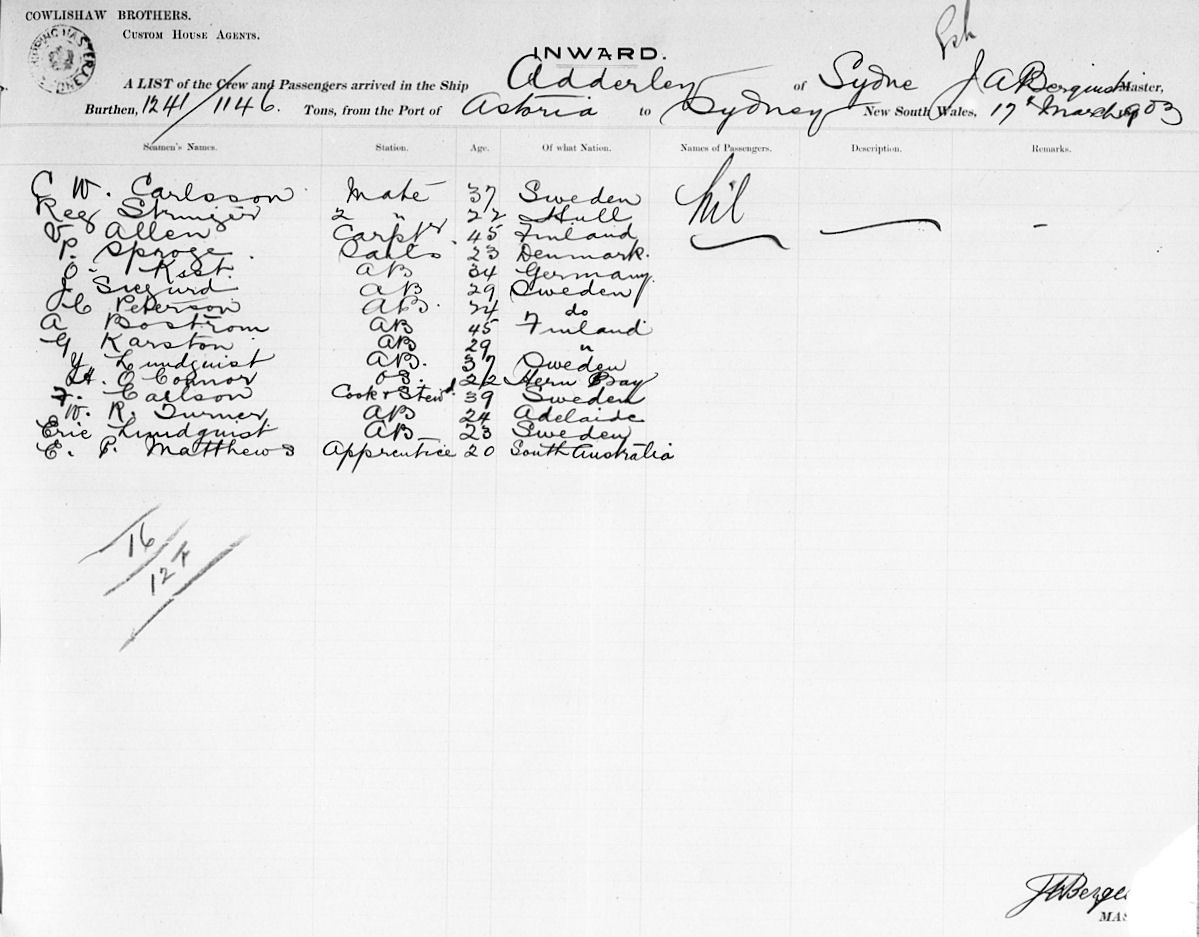 COWLISHAW BROTHERS.
CUSTOM HOUSE AGENTS.
INWARD.
A LIST of the Crew and Passengers arrived in the Ship Adderley of Sydne J A Berquist Master,
Burthen, 1241/1146. Tons, from the Port of Astoria to Sydney New South Wales, 17th March 1903
Seamen's Names. Station. Age. Of what Nation. Names of Passengers. Description. Remarks.
C W. Carlsson Mate 37 Sweden Nil — –
Reg Stringer 2 " 22 Hull
V Allen Carptr. 45 Finland
P. Sproge Sails 23 Denmark.
O. AB 34 Germany.
J. Siegurd AB 29 Sweden
C Peterson AB. 24 do
A Bostrom AB 45 Finland
G Karston AB 29 "
Y Lundquist AB. 37 Sweden
H. O Connor OS. 22 Bay
F. Carlson Cook & Stewd. 39 Sweden
W. R. Turner AB 24 Adelaide
Eric Lundquist AB 23 Sweden
E. P. Matthews Apprentice 20 South Australia
16
12 F